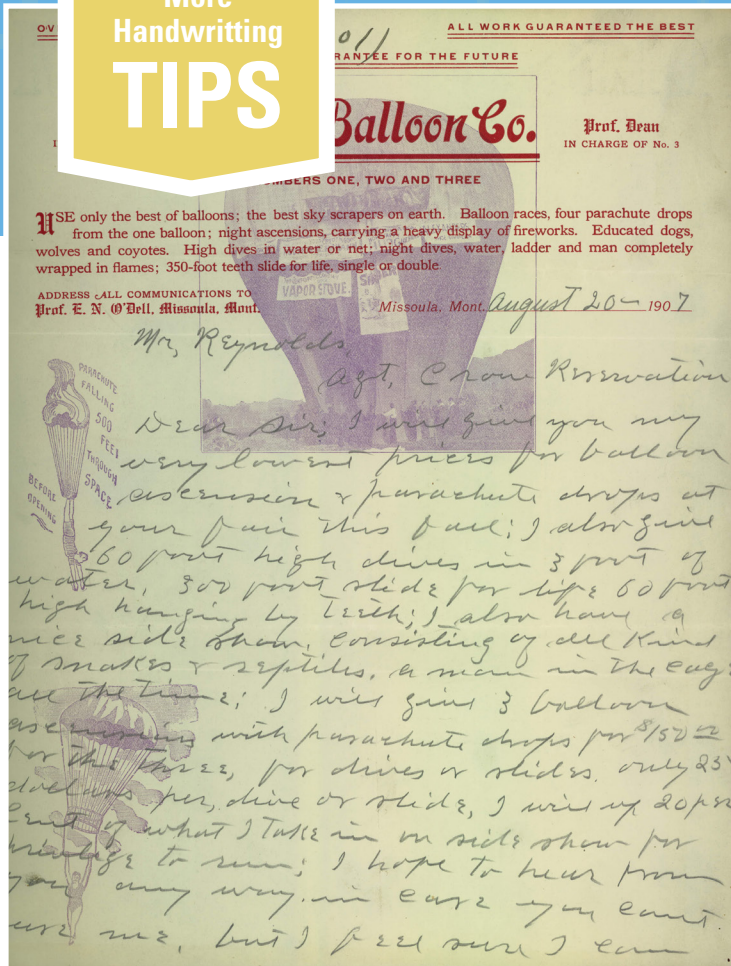 More
Handwritting
TIPS
O·V
ALL WORK GUARANTEED THE BEST
011
RANTEE FOR THE FUTURE
Balloon Co.
Prof. Dean
IN CHARGE OF No. 3
MBERS ONE, TWO AND THREE
USE only the best of balloons; the best sky scrapers on earth. Balloon races, four parachute drops
from the one balloon; night ascensions, carrying a heavy display of fireworks. Educated dogs,
wolves and coyotes. High dives in water or net; night dives, water, ladder and man completely
wrapped in flames; 350-foot teeth slide for life, single or double
VAPOR STOVE.
ADDRESS ALL COMMUNICATIONS TO
Prof. E. N. O'Dell, Missoula, Mont.
Missoula, Mont. August 20 — 1907
Mr, Reynolds,
Agt, Crow Reservation
PARACHUTE
FALLING
500
FEET
THROUGH
SPACE
BEFORE
OPENING
Dear Sir; I will give you my
very lowest prices for balloon
ascension & parachute drops at
your fair this fall; I also give
60 foot high dives in 3 foot of
water, 300 foot slide for life 60 foot
high hanging by teeth; I also have a
nice side show, consisting of all kind
of snakes & reptiles, a man in the cage
all the time; I will give 3 balloon
ascensions with parachute drops for $150 00
for the three, for dives or slides. only 25
dollars per, dive or slide, I will up 20 per
cent of what I take in on side show for
privilege to run; I hope to hear from
you any way. in case you cant
use me, but I feel sure I can